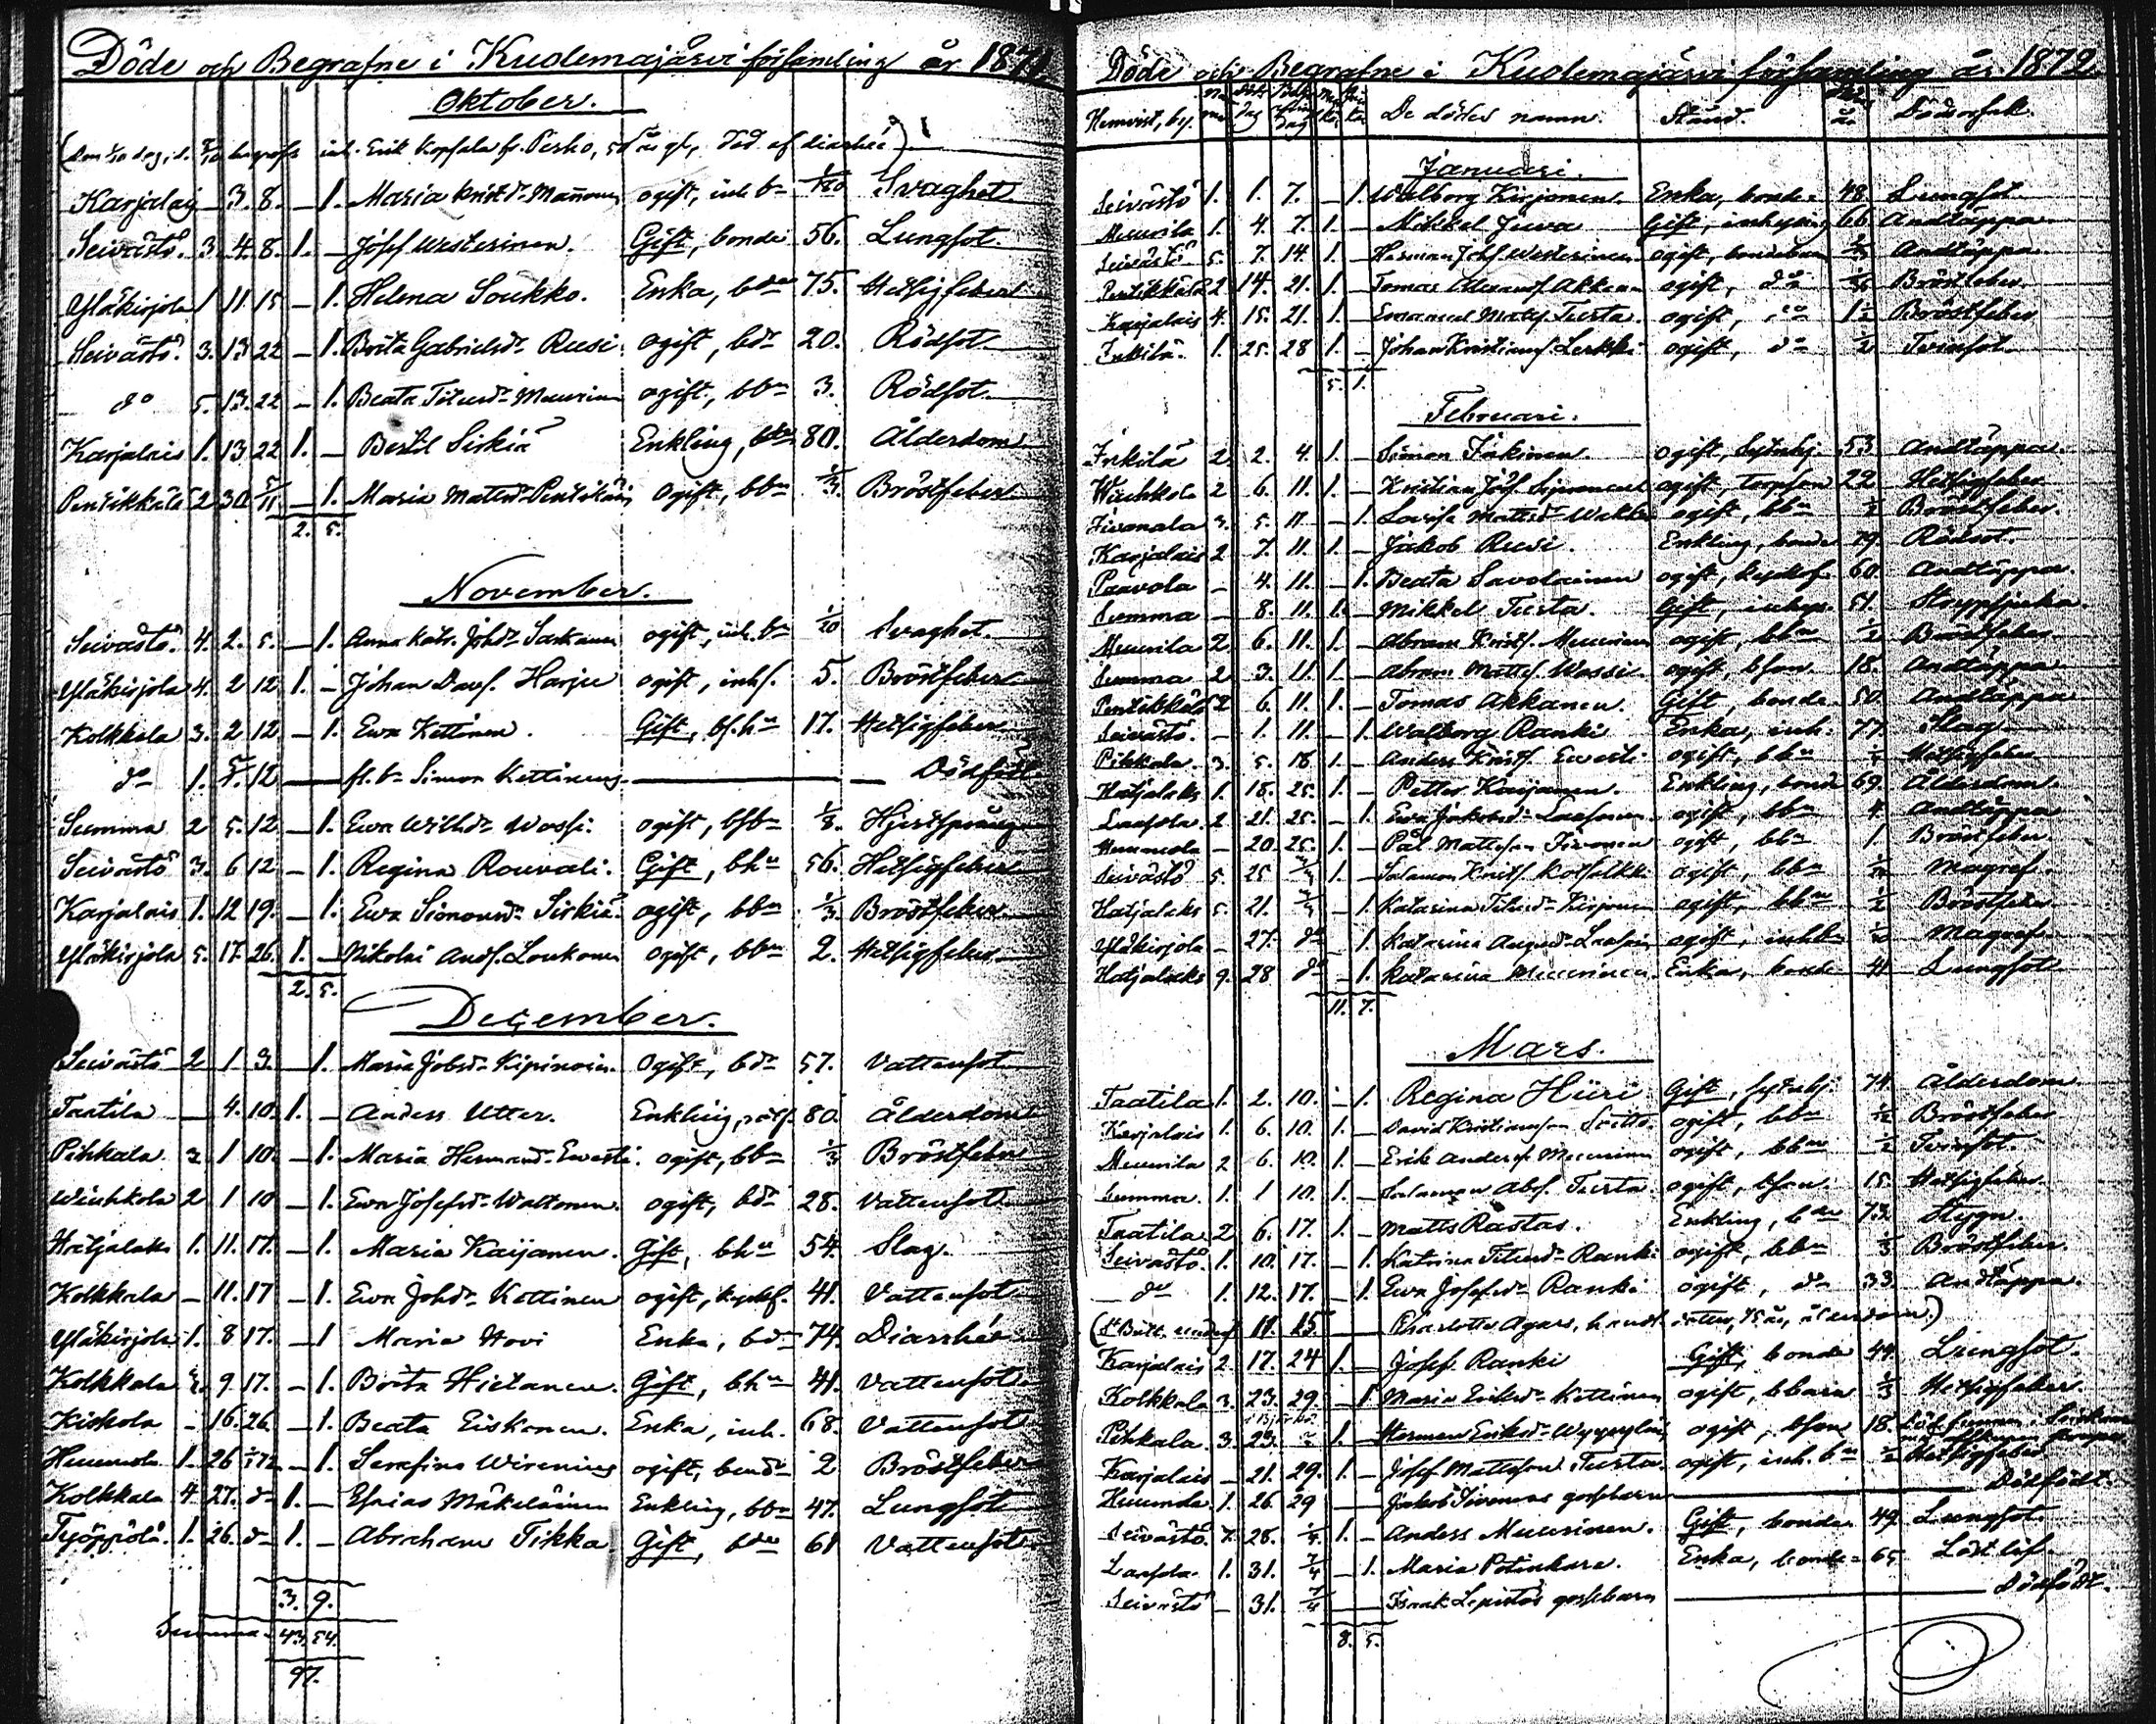 Döde och Begrafne i Kuolemajärvi församling år 1871
Oktober.
inh. Erik Kopsala fr. Pesko, död af diarhée)
Karjalais 3. 8. – 1. Maria Ogift, inh. bn 1/120 Svaghet.
Seivästö. 3. 4. 8. 1. – Josef Westerinen. Gift, bonde 56. Lungsot.
Yläkirjola 1 11 15 – 1. Helena Soukko. Enka, 75. Hetsigfeber
Seivästö. 3. 13 22 – 1. Brita Gabrielsdr Rusi. ogift, bdr 20. Rödsot.
do 5. 13. 22 – 1. Beata Titusdr Muurinen ogift, bbn 3. Rödsot.
Karjalais 1. 13 22 1. – Bertil Sirkiä Enkling, 80. Ålderdom
Pentikkälä 2 30 5/11 – 1. Maria Mattsdr Pentikäin Ogift, bbn 1/3 Bröstfeber
2. 5.
November.
Seivästö. 4. 2. 5. – 1. Anna Katr. Johdr ogift, inh. bn 1/20 Svaghet.
Yläkirjola 4. 2 12 1. – Johan Davs. Harju ogift, inhs. 5. Bröstfeber
Kolkkala 3. 2 12 – 1. Ewa Kettinen. Gift, 17. Hetsigfeber
do 1. 5. 12 fl. bn Simon Kettinens Dödfödt
Summa 2 5. 12 – 1. Ewa Wilhdr Wossi. ogift, 1/8. Hjertsprång
Seivästö 3. 6 12 – 1. Regina Rouvali. Gift, bhu 56. Hetsigfeber
Karjalais 1. 12 19. – 1. Ewa Simonsdr Sirkiä. ogift, bbn 1/3 Bröstfeber
Yläkirjola 5. 17. 26. 1. – Nikolai Ands. Loukonen ogift, bbn 2. Hetsigfeber
2. 5.
December.
Seivästö 2 1 3. – 1. Maria Jobsdr Kipinoin. Ogift, bdr 57. Vattensot
Taatila – 4. 10. 1. – Anders Utter. Enkling, 80. Ålderdom
Pihkala 2 1 10. – 1. Maria Hermansdr Ewesti. ogift, bbn 1/3 Bröstfeber
Wiuhkola 2 1 10 – 1. Ewa Josefsdr Waltonen. ogift, bdr 28. Vattensot
Hatjalaks 1. 11. 17. – 1. Maria Kaijanen. Gift, bhu 54. Slag.
Kolkkala – 11. 17 – 1. Ewa Johdr Kettinen ogift, 41. Vattensot
Yläkirjola 1. 8 17. – 1 Maria Hovi Enka, 74. Diarrhée
Kolkkala 2. 9 17. – 1. Brita Hietanen. Gift, bhu 41. Vattensot
Kiskola – 16. 26. – 1. Beata Eiskonen. Enka, inh. 68. Vattensot
Huumola 1. 26 1/1 72 – 1. Serafina Wirenius ogift, 2 Bröstfeber
Kolkkala 4. 27. do 1. – Esaias Mäkeläinen Enkling, 47. Lungsot
Työppölä. 1. 26. do 1. – Abraham Tikka Gift, 61 Vattensot
3. 9.
Summa 43. 54.
97.
Döde och Begrafne i Kuolemajärvi församling år 1872.
Hemvist, by. De dödes namn. Stånd. år Dödsorsak.
Januari.
Seivästö 1. 1. 7. – 1. Walborg Kirjonen. Enka, bonde 48. Lungsot
Muurila 1. 4. 7. 1. – Mikkel Juva Gift, inhysing 66 Andtäppa
Seivästö 5. 7. 14. 1. – Herman Josefs. Westerinen ogift, bondebarn Andtäppa
Pentikkälä 2 14. 21. 1. – Tomas Akkanen ogift, do Bröstfeber
Karjalais 4. 15. 21. 1. – Emanuel Matss. Tursta. ogift, do 1 1/2 Bröstfeber
Inkilä. 1. 25. 28 1. – Johan Kristians. Lerkki ogift, do 1/2 Tvinsot
5. 1.
Februari.
Inkilä 2. 2. 4. 1. – Simon Inkinen. ogift, 53. Andtäppa.
Wiuhkola 2 6. 11. 1. – Kristian Josefs. ogift, torpson 22. Hetsigfeber
3. 5. 11 – 1. Lovisa Mattsdr ogift, bbn 1/2 Bröstfeber.
Karjalais 2 7. 11. 1. – Jakob Rusi. Enkling, bonde 79. Rödsot.
Paavola – 4. 11. – 1. Beata Savolainen ogift, 60. Andtäppa.
Summa – 8. 11. 1. – Mikkel Tursta. Gift, inhys. 51. Strypsjuka.
Muurila 2. 6. 11. 1. – Abram Krists. Muurinen ogift, bbn 1/2 Bröstfeber
Summa 2 3. 11. 1. – Abram Mattss. Wossi. ogift, bson. 18. Andtäppa
Pentikkälä 2 6. 11. 1. – Tomas Akkanen. Gift, bonde 50. Andtäppa
Seivästö. – 1. 11. – 1. Walborg Ranki Enka, inh. 77. Slag
Pihkala. 3. 5. 18 1. – Anders Krists. Ewesti ogift, bbn Hetsigfeber
Hatjalaks 1. 18. 25. 1. – Petter Kaijanen. Enkling, bonde 69. Ålderdom.
Laasola. 2 21. 25. – 1 Ewa Jakobsdr Laasonen ogift, bbn 4. Andtäppa
Huumola – 20. 25. 1. – Pål Mattsson ogift, bbn 1. Bröstfeber
Seivästö 5. 25 1. – Salamon Krists. ogift, bbn Magref.
Hatjalaks 5. 21. – 1 Katarina Titusdr Kirjonen ogift, bbn 1/2 Bröstfeber
Yläkirjola – 27. do – 1. Katarina ogift, inhbn Magref
Hatjalaks 9. 28 do – 1. Katarina Muurinen. Enka, bonde 41 Lungsot
11. 7.
Mars.
Taatila 1. 2. 10. – 1. Regina Hiiri Gift, 74. Ålderdom
Karjalais 1. 6. 10. 1. – David Kristiansson ogift, bbn 1/12 Bröstfeber
Muurila 2 6. 10. 1. – Erik Anderss. Muurinen ogift, bbn 1/2 Tvinsot.
Summa. 1. 1 10. 1. – Salamon Abs. Tursta. ogift, bson. 15. Hetsigfeber
Taatila 2 6. 17. 1. – Matts Rastas. Enkling, 73. Stygn.
Seivästö. 1. 10. 17. – 1. Katrina Titusdr Ranki ogift, bbn 1/3 Bröstfeber.
do 1. 12. 17. – 1. Ewa Josefsdr Ranki ogift, do 33. Andtäppa.
11. 15 Charlotta Agars, ålderdom.)
Karjalais 2. 17. 24 1. – Josef Ranki Gift, bonde 44. Lungsot.
Kolkkala 3. 23. 29. – 1 Maria Eriksdr Kettinen ogift, bbarn 1/3 Hetsigfeber.
Pihkala. 3. 23. 1. – Herman ogift, bson 18.
Karjalais – 21. 29. 1. – Josef Mattsson Tursta. ogift, inh. bn 1/2 Hetsigfeber
Huumola. 1. 26. 29 Jakob gossebarn Dödfödt.
Seivästö. 7. 28. 1/4. 1. – Anders Muurinen. Gift, bonde 49. Lungsot.
Laasola. 1. 31. 7/4 – 1. Maria Potinkara. Enka, bonde 65. Löst lif.
Seivästö – 31. 7/4 Isaak Lepistös gossebarn Dödfödt.
8. 5.